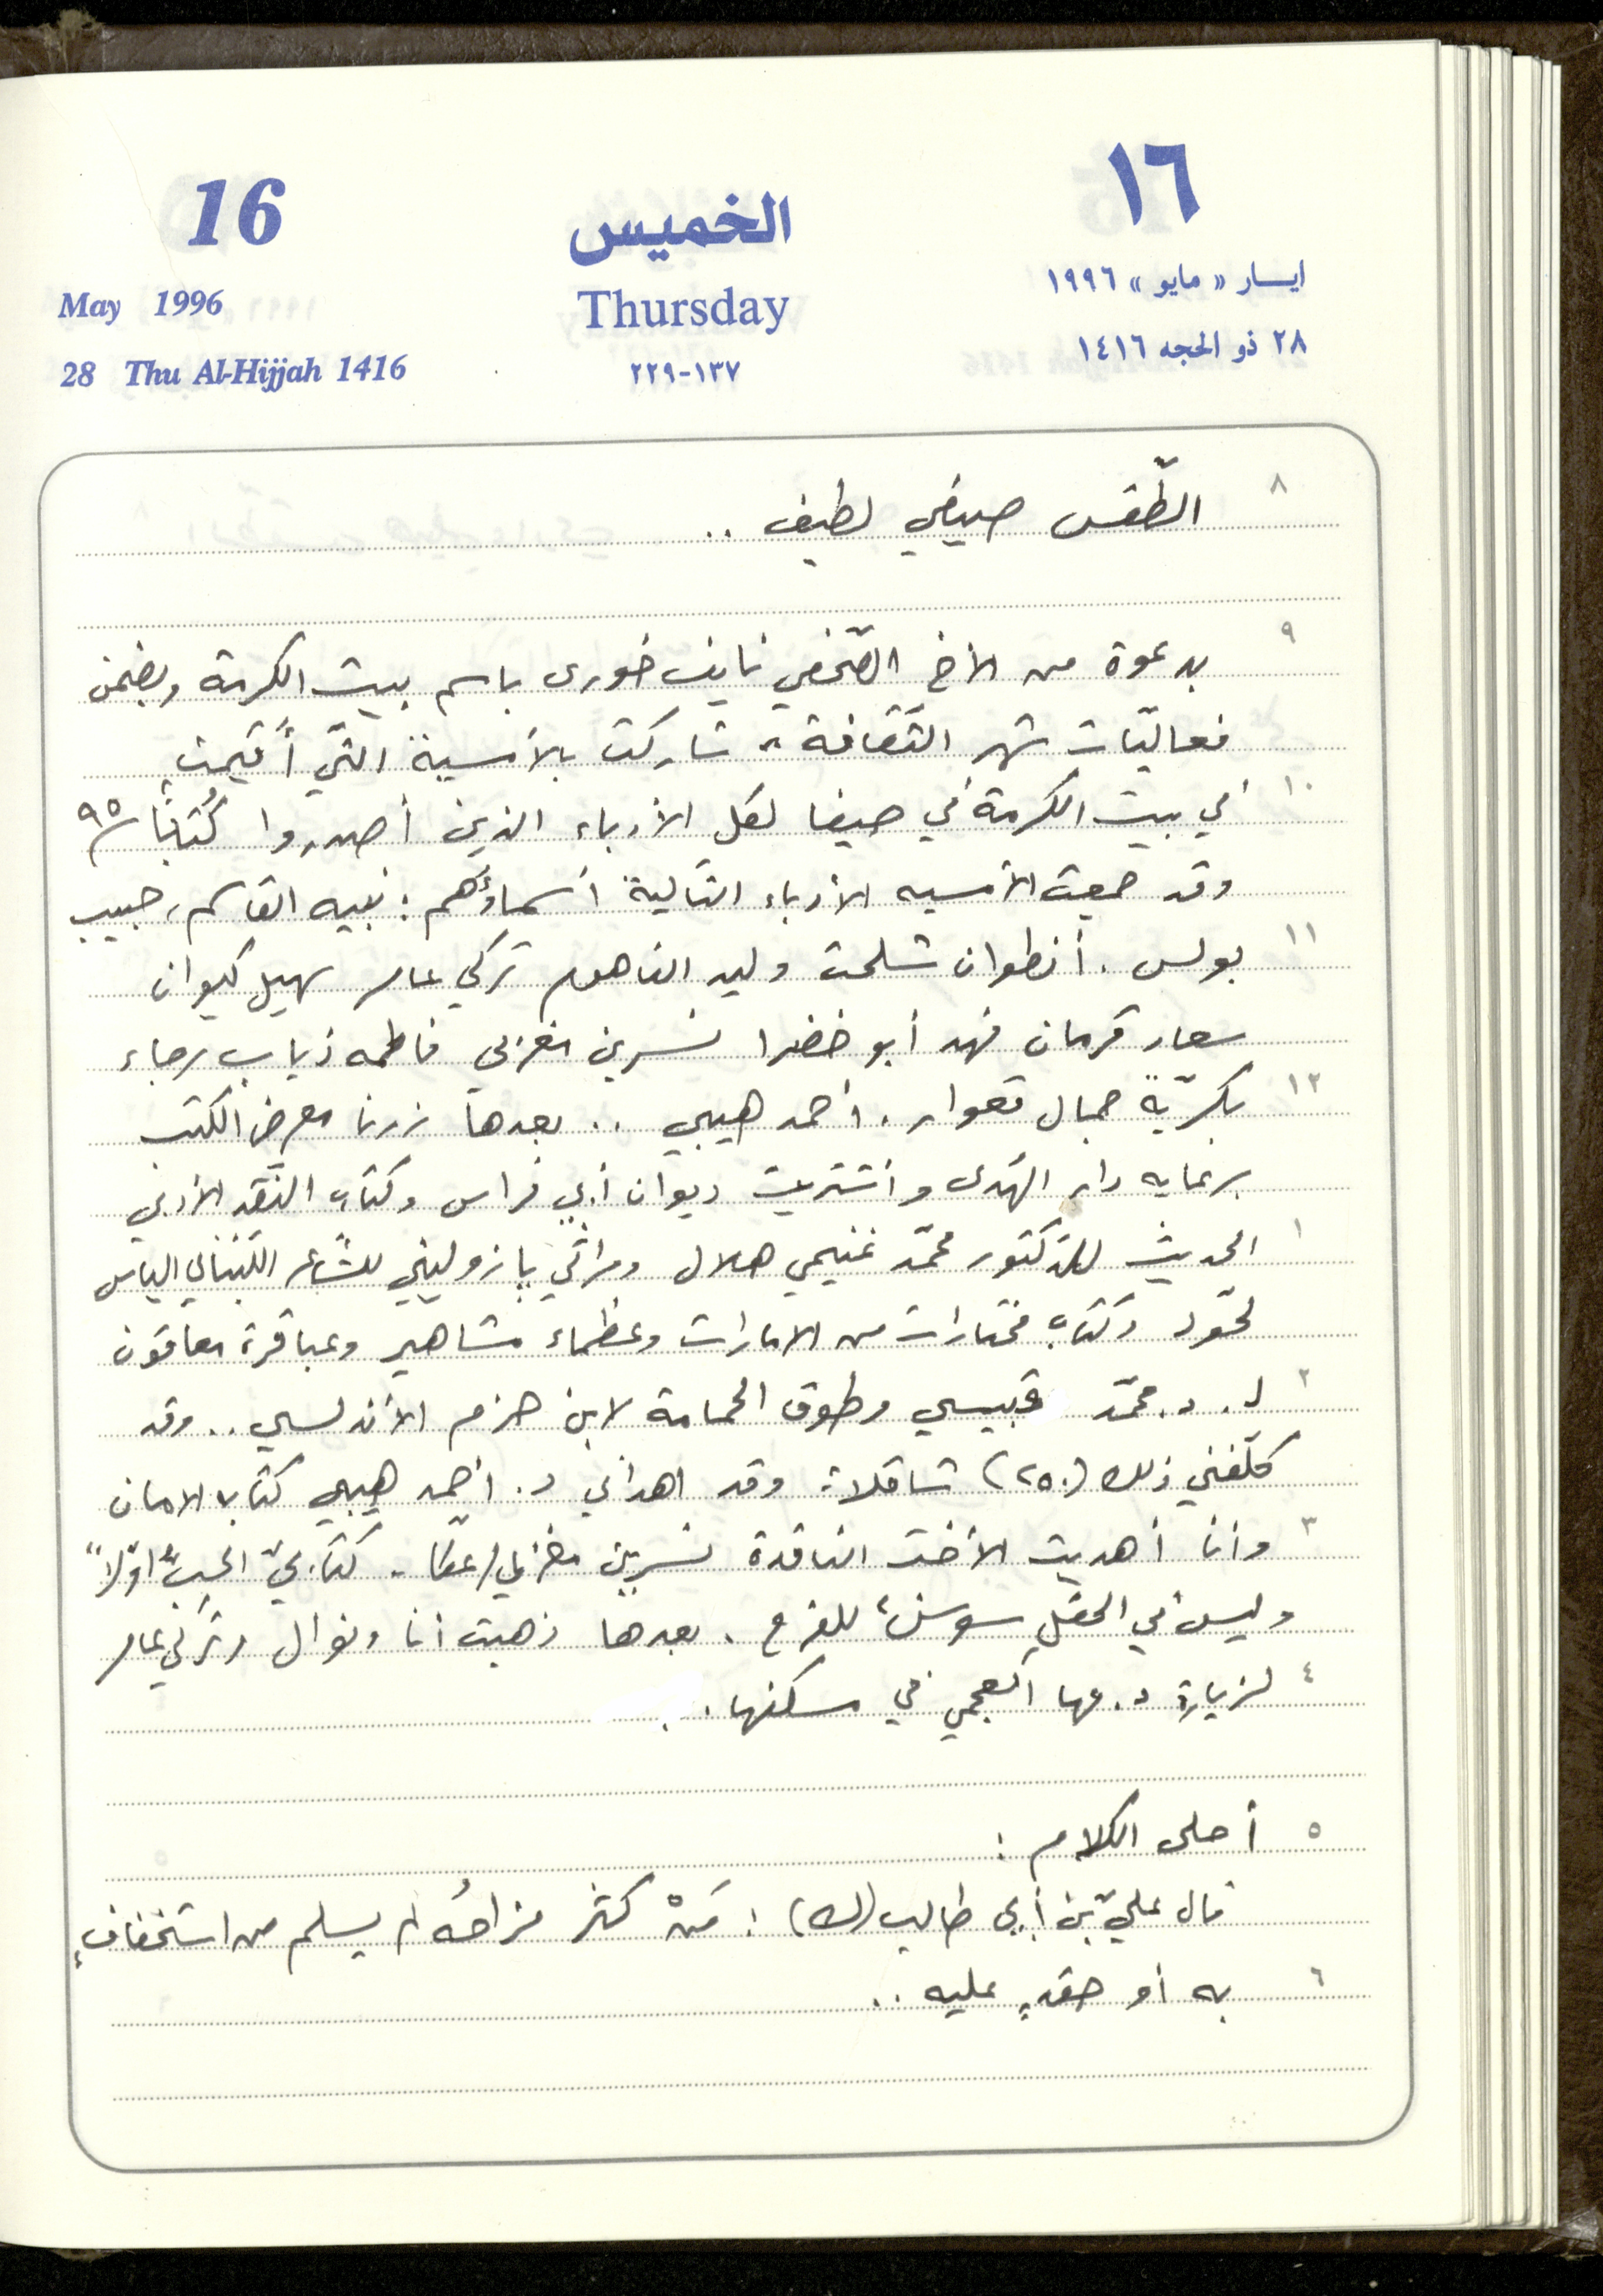 16
الخميس
١٦
May 1996
Thursday
ايـــار « مايو » ١٩٩٦
28 Thu Al-Hijjah 1416
١٣٧-٢٢٩
٢٨ ذو الحجه ١٤١٦
٨ الطّقس صيفي لطيف ..
٩ بدعوة من الأخ الصّحفي نايف خورى باسم بيت الكرمة وبضمن
فعاليّات شهر الثّقافة شاركت بالأمسية التّي أُقيمت
١٠ في بيت الكرمة في حيفا لكل الأدباء الذين أصدروا كُتابًا ٩٥
وقد جمعت الأمسيه الأدباء التّالية أسماؤهم : نبيه القاسم، حبيب
١١ بولس . أنطوان شلحت وليد الفاهوم تركي عامر سهيل كيوان
سعاد قرمان فهد أبو خضرا نسرين مغربي فاطمه ذياب رجاء
١٢ بكريّة جمال قعوار . أحمد هيبي .. بعدها زرنا معرض الكتب
برعايه دار الهدى واشتريت ديوان أبي فراس وكتاب النّقد الأدبي
١ الحديث للدّكتور محمّد غنيمي هلال ومراثي بازوليني للشّاعر اللّبناني الياس
لحّود وكتاب مختارات من الامارات وعظماء مشاهير وعباقرة معاقون
٢ لـ . د. محمّد قبيسي وطوق الحمامة لابن حزم الأندلسي .. وقد
كلّفني ذلك (٢٥٠) شاقلاً وقد اهداني د. أحمد هيبي كتاب الامان
٣ وأنا أهديت الأخت الناقدة نسرين مغربي/عكّا . كتابيّ الحبّ أوّلاً"
وليس في الحقل سوسن، للفرح . بعدها ذهبت أنا ونوال وتركي عامر
٤ لزيارة د. مها العجمي في مسكنها .
٥ أحلى الكلام :
قال عليّ بن أبي طالب (ك) : مَنْ كثر مزاحُه لم يسلم من استخفافٍ
٦ به أو حقدٍ عليه ..